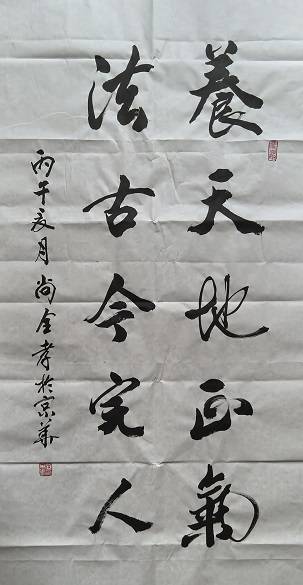 養天地正氣
法古今完人
丙午夏月尚金孝於京華